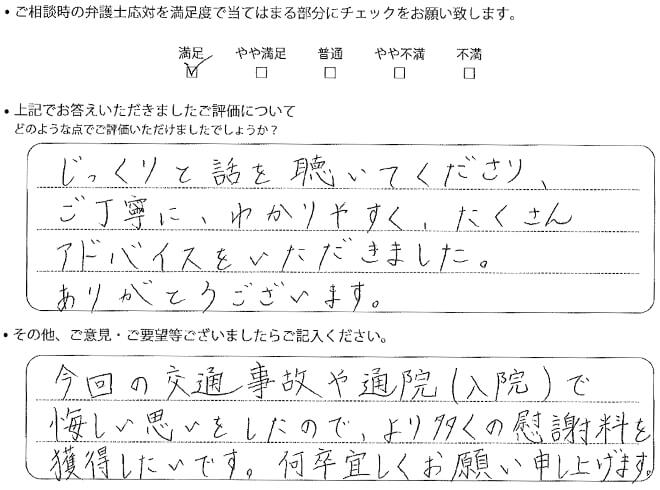 ・ご相談時の弁護士応対を満足度で当てはまる部分にチェックをお願い致します。
満足 やや満足 普通 やや不満 不満
・上記でお答えいただきましたご評価について
どのような点でご評価いただけましたでしょうか？
じっくりと話を聴いてくださり、
ご丁寧に、わかりやすく、たくさん
アドバイスをいただきました。
ありがとうございます。
・その他、ご意見・ご要望等ございましたらご記入ください。
今回の交通事故や通院(入院)で
悔しい思いをしたので、より多くの慰謝料を
獲得したいです。何卒宜しくお願い申し上げます。